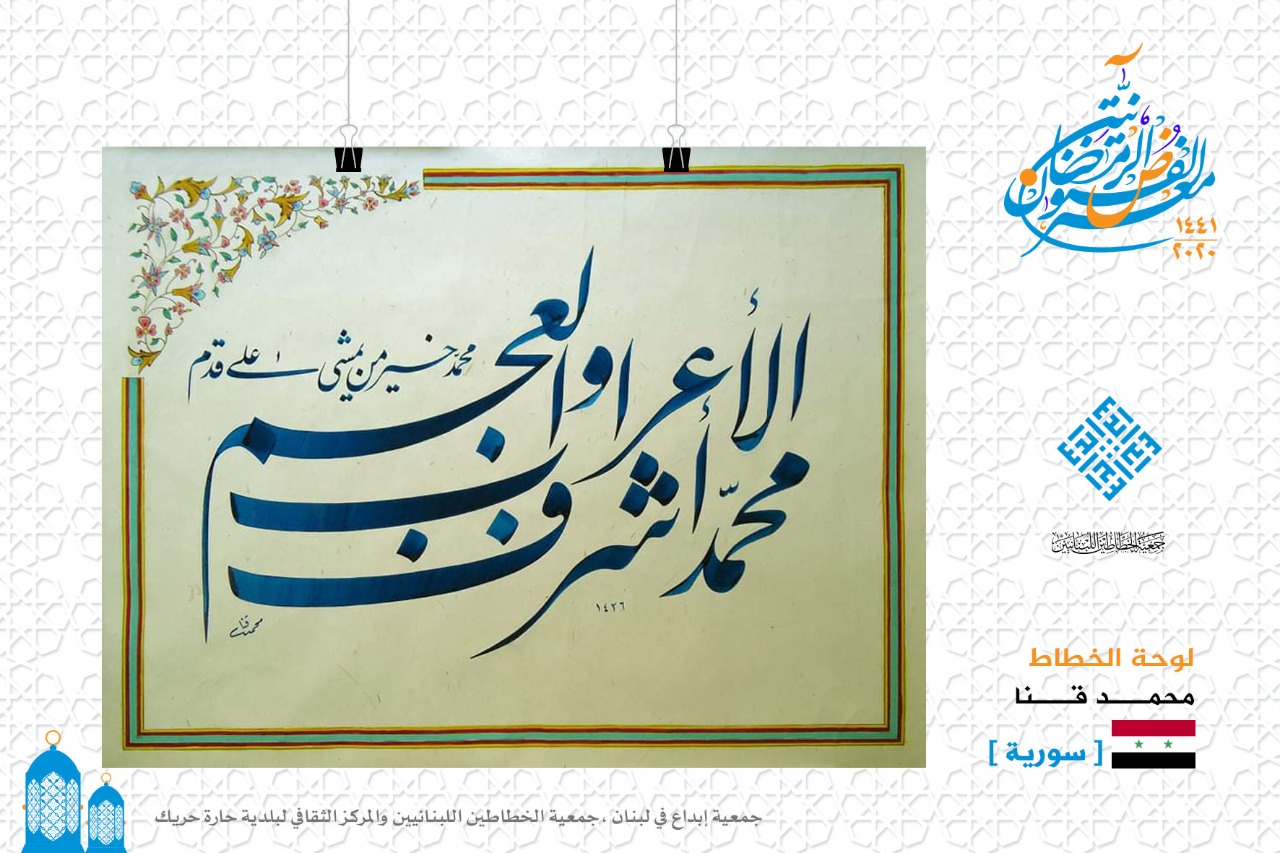 معرض الفنون الرمضانية
١٤٤١
٢٠٢٠
محمّد أشرف الأعراب والعجم
محمّد خير من يمشي على قدم
١٤٢٦
محمد قنا
جمعية الخطاطين اللبنانيين
لوحة الخطاط
محمد قنا
[ سورية ]
جمعية إبداع في لبنان ، جمعية الخطاطين اللبنانيين والمركز الثقافي لبلدية حارة حريك